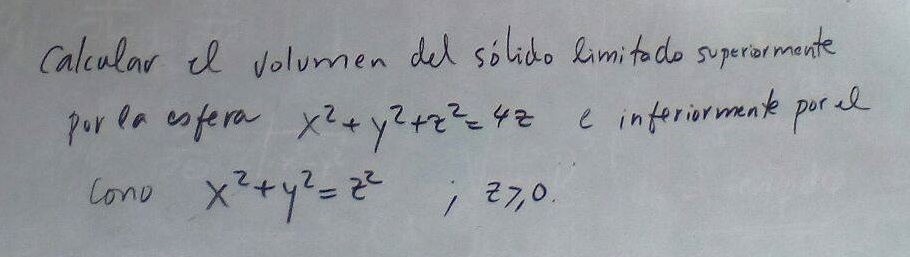 Calcular el volumen del sólido limitado superiormente
por la esfera x²+y²+z²=4z e inferiormente por el
cono x²+y²=z² ; z≥0.